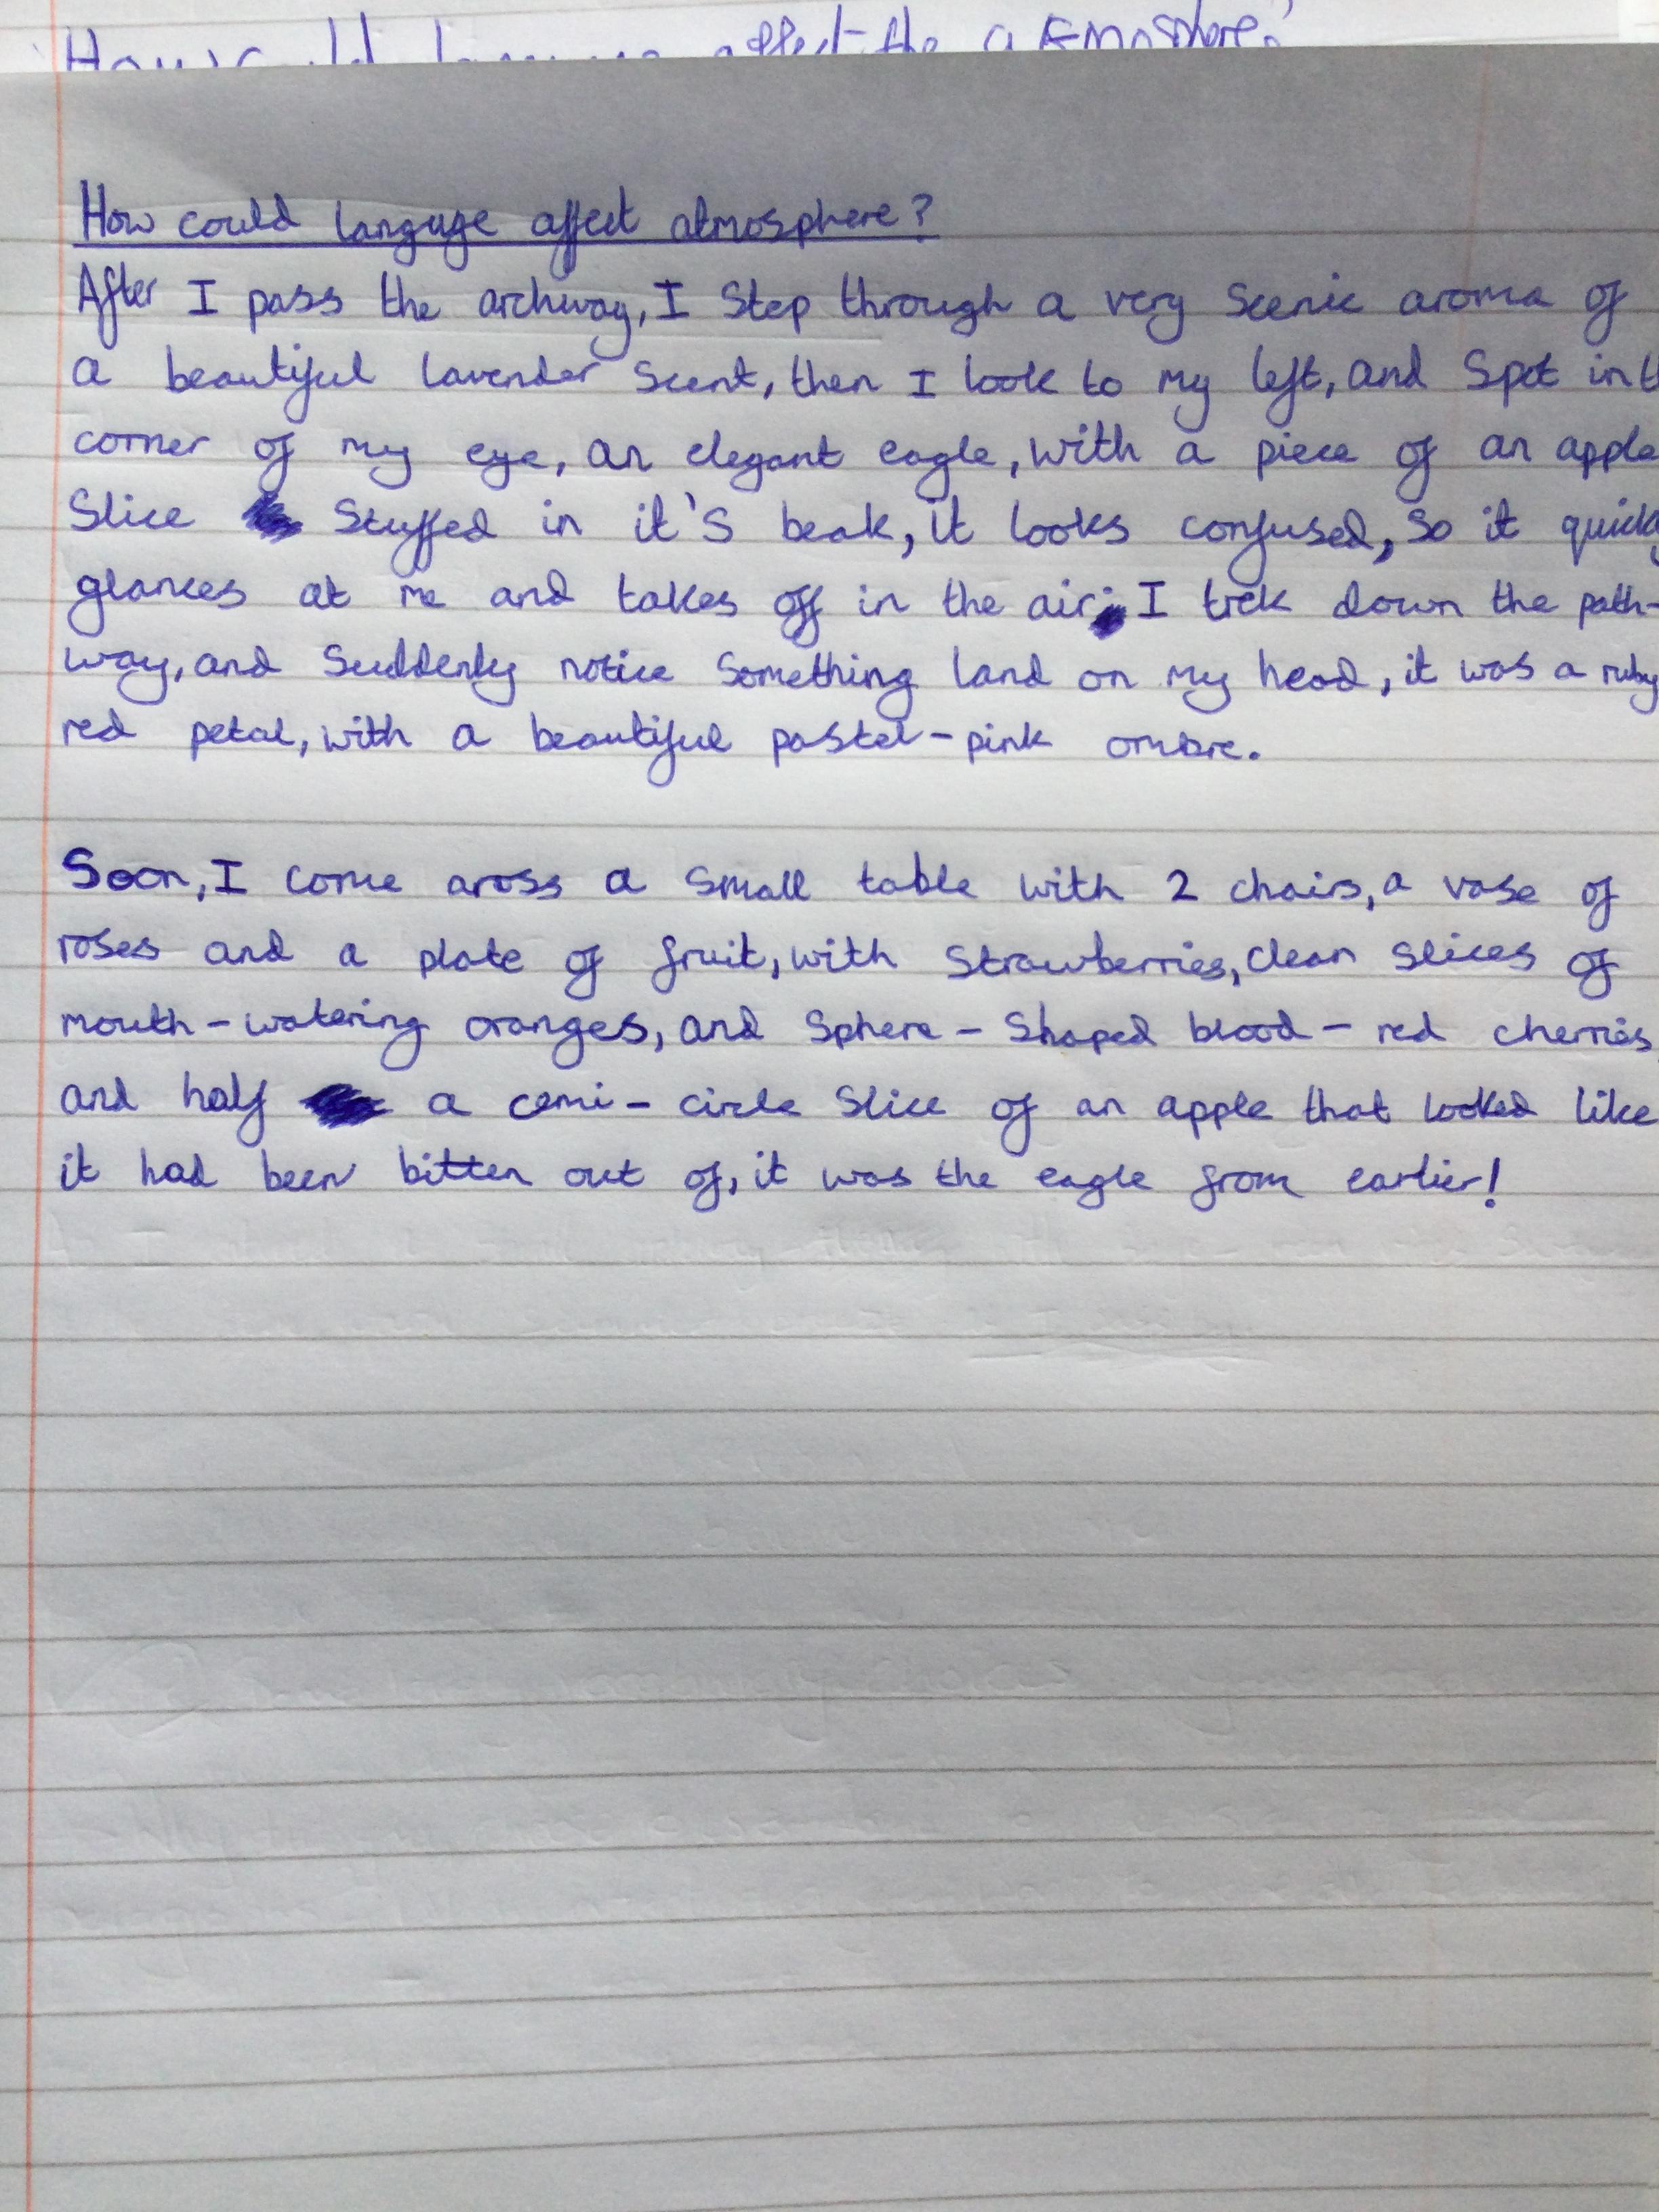 How could languge affect the atmosphere?
How could languge affect atmosphere?
After I pass the archway, I step through a very scenic aroma of
a beautiful lavender scent, then I look to my left, and spot in
corner of my eye, an elegant eagle, with a piece of an apple
slice stuffed in it's beak, it looks confused, so it quick
glances at me and takes off in the air. I trek down the path-
way, and suddenly notice something land on my head, it was a ruby
red petal, with a beautiful pastel-pink ombre.
Soon, I come aross a small table with 2 chairs, a vase of
roses and a plate of fruit, with strawberries, clean slices of
mouth-watering oranges, and sphere-shaped blood-red cherries
and half a cemi-circle slice of an apple that looked like
it had been bitten out of, it was the eagle from earlier!